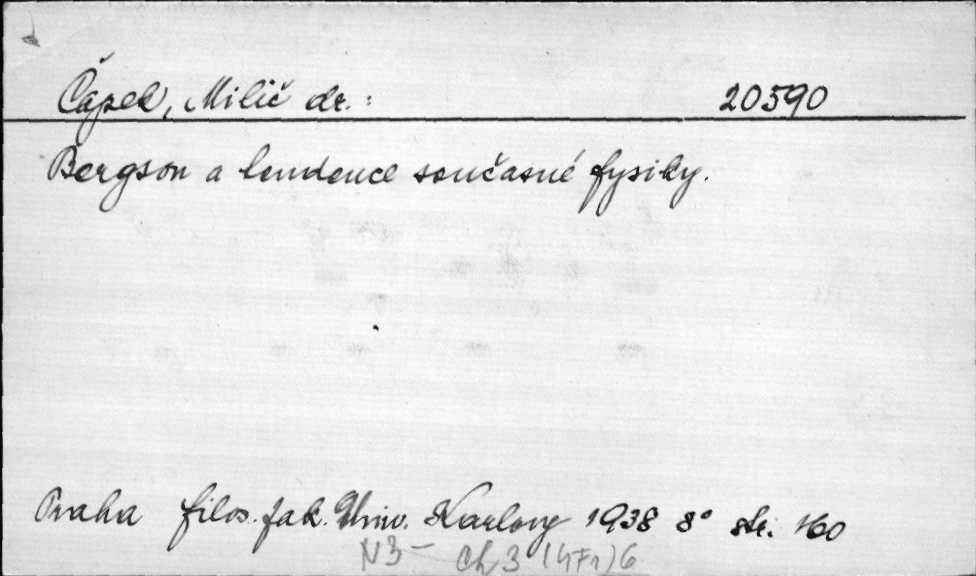 Čapek, Milič dr.: 20590
Bergson a tendence současné fysiky.
Praha filos. fak. Univ. Karlovy 1938 8° str. 160
N3 - Ch3 (4Fr)6